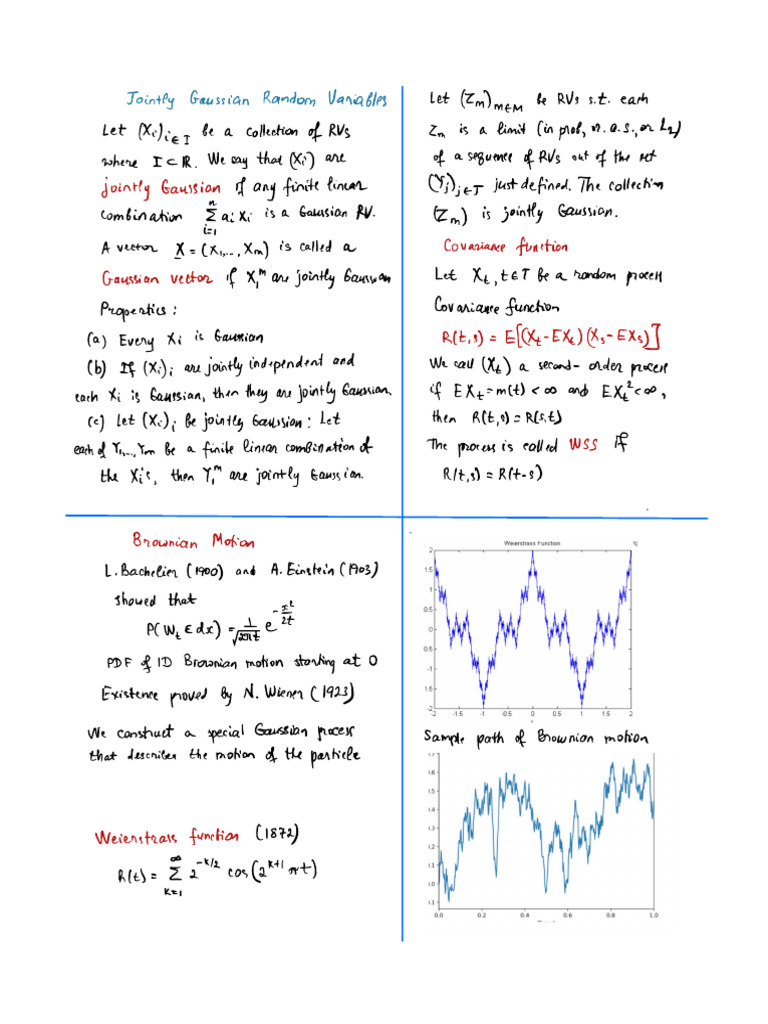 Jointly Gaussian Random Variables
Let (Xi)i∈I be a collection of RVs
where I⊂ℝ. We say that (Xi) are
jointly Gaussian if any finite linear
combination Σ_{i=1}^{n} ai Xi is a Gaussian RV.
A vector X = (X1,..., Xm) is called a
Gaussian vector if X_1^m are jointly Gaussian
Properties:
(a) Every Xi is Gaussian
(b) If (Xi)i are jointly independent and
each Xi is Gaussian, then they are jointly Gaussian.
(c) Let (Xi)i be jointly Gaussian: Let
each of Y1,...,Ym be a finite linear combination of
the Xi's, then Y_1^m are jointly Gaussian.
Let (Zm)m∈M be RVs s.t. each
Zm is a limit (in prob, m. a.s., or L2)
of a sequence of RVs out of the set
(Yj)j∈T just defined. The collection
(Zm) is jointly Gaussian.
Covariance function
Let Xt, t∈T be a random process
Covariance function
R(t,s) = E[(Xt-EXt)(Xs-EXs)]
We call (Xt) a second-order process
if EXt=m(t) < ∞ and EXt²<∞,
then R(t,s) = R(s,t)
The process is called WSS if
R(t,s) = R(t-s)
Brownian Motion
L. Bachelier (1900) and A. Einstein (1903)
showed that
P(Wt ∈ dx) = 1/√(2πt) e^{-x²/2t}
PDF of 1D Brownian motion starting at 0
Existence proved by N. Wiener (1923)
We construct a special Gaussian process
that describes the motion of the particle
Weierstrass function (1872)
R(t) = Σ_{k=1}^{∞} 2^{-k/2} cos(2^{k+1} πt)
Weierstrass Function
2
1.5
1
0.5
0
-0.5
-1
-1.5
-2
-2 -1.5 -1 -0.5 0 0.5 1 1.5 2
x
Sample path of Brownian motion
0.0 0.2 0.4 0.6 0.8 1.0